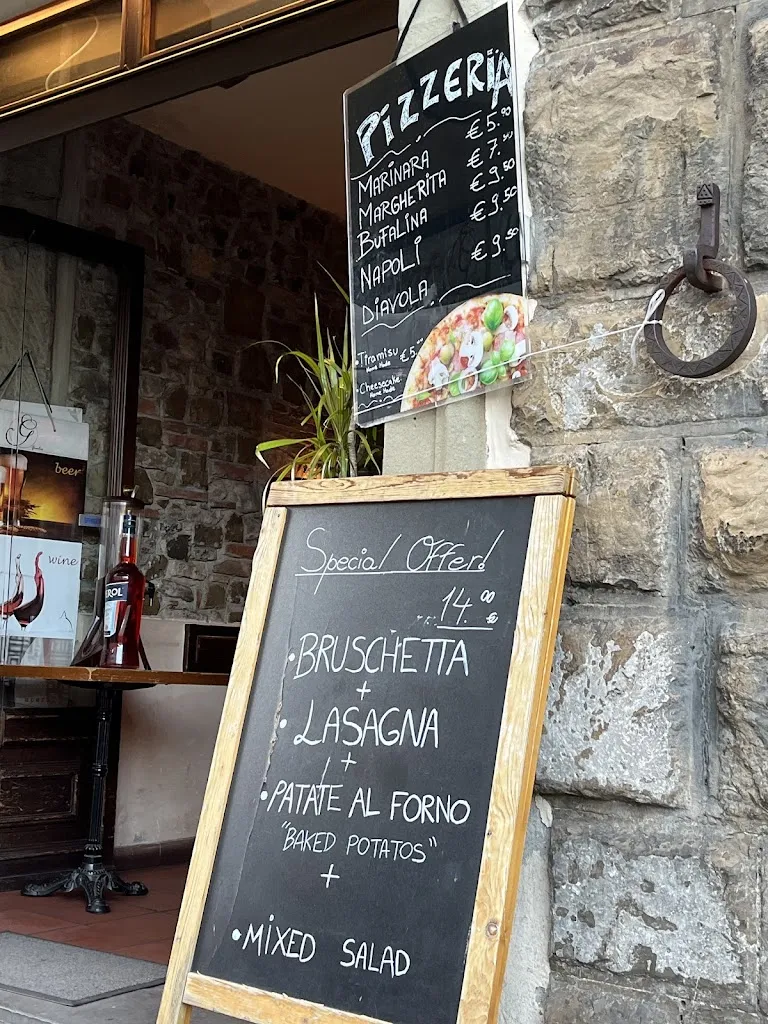 PIZZERIA
MARINARA €5.90
MARGHERITA €7.50
BUFALINA €9.50
NAPOLI €9.50
DIAVOLA €9.50
• Tiramisu €5.
Home Made
• Cheesecake
Home Made
beer
wine
ROL
Special Offer!
14.00 €
• BRUSCHETTA
+
• LASAGNA
+
• PATATE AL FORNO
"BAKED POTATOS"
+
• MIXED SALAD